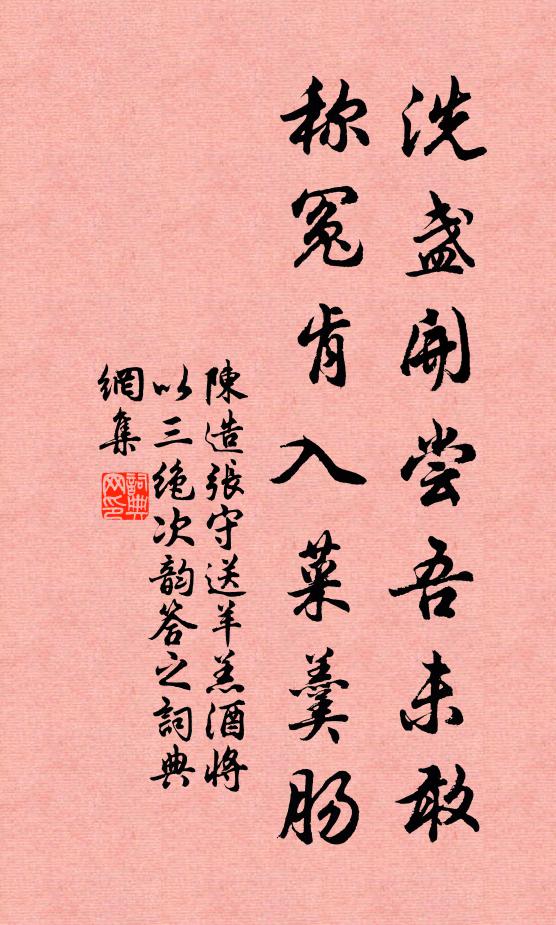 洗盏開尝吾未敢
称冤肯入菜羹肠
陳造張守送羊羔酒將
以三绝次韵答之詞典
網集
詞典
网印